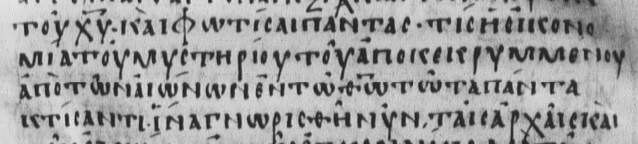 ΤΟΥΧΥ·ΚΑΙΦΩΤΙCΑΙΠΑΝΤΑC·ΤΙCΗΟΙΚΟΝΟ
ΜΙΑΤΟΥΜΥCΤΗΡΙΟΥΤΟΥΑΠΟΚΕΚΡΥΜΜΕΝΟΥ
ΑΠΟΤΩΝΑΙΩΝΩΝΕΝΤΩΘΩΤΩΤΑΠΑΝΤΑ
ΚΤΙCΑΝΤΙ·ΙΝΑΓΝΩΡΙCΘΗΝΥΝ,ΤΑΙCΑΡΧΑΙCΚΑΙ